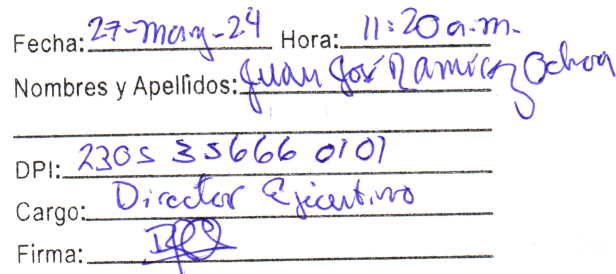 Fecha: 27-may-24 Hora: 11:20 a.m.
Nombres y Apellidos: Juan José Ramírez Ochoa
DPI: 2305 35666 0101
Cargo: Director Ejecutivo
Firma: